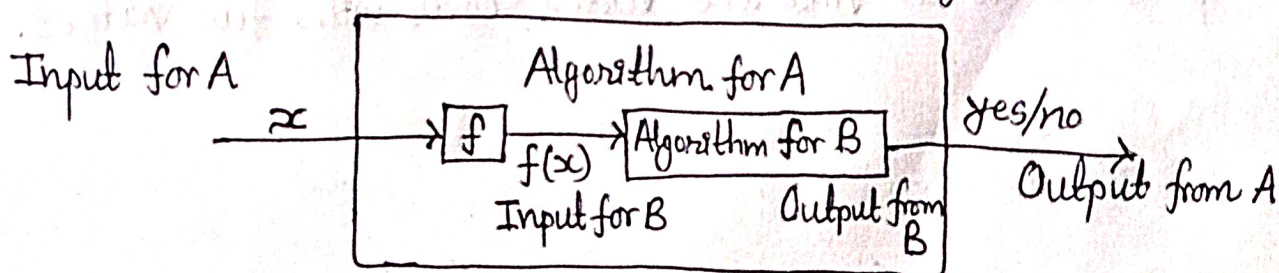 Input for A
Algorithm for A
x
f
f(x)
Algorithm for B
yes/no
Input for B
Output from
B
Output from A